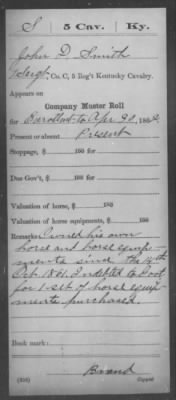 S | 5 Cav. | Ky.
John D. Smith
Sergt, Co. C, 5 Reg't Kentucky Cavalry.
Appears on
Company Muster Roll
for Enrollment to Apr 30, 1862.
Present or absent Present
Stoppage, $ 100 for
Due Gov't, $ 100 for
Valuation of horse, $ 100
Valuation of horse equipments, $ 100
Remarks: Owned his own
horse and horse equip-
ments since the 14th
Oct 1861. Indebted to Govt
for 1 set of horse equip-
ments purchased.
Book mark:
Brand
(358) Copyist.